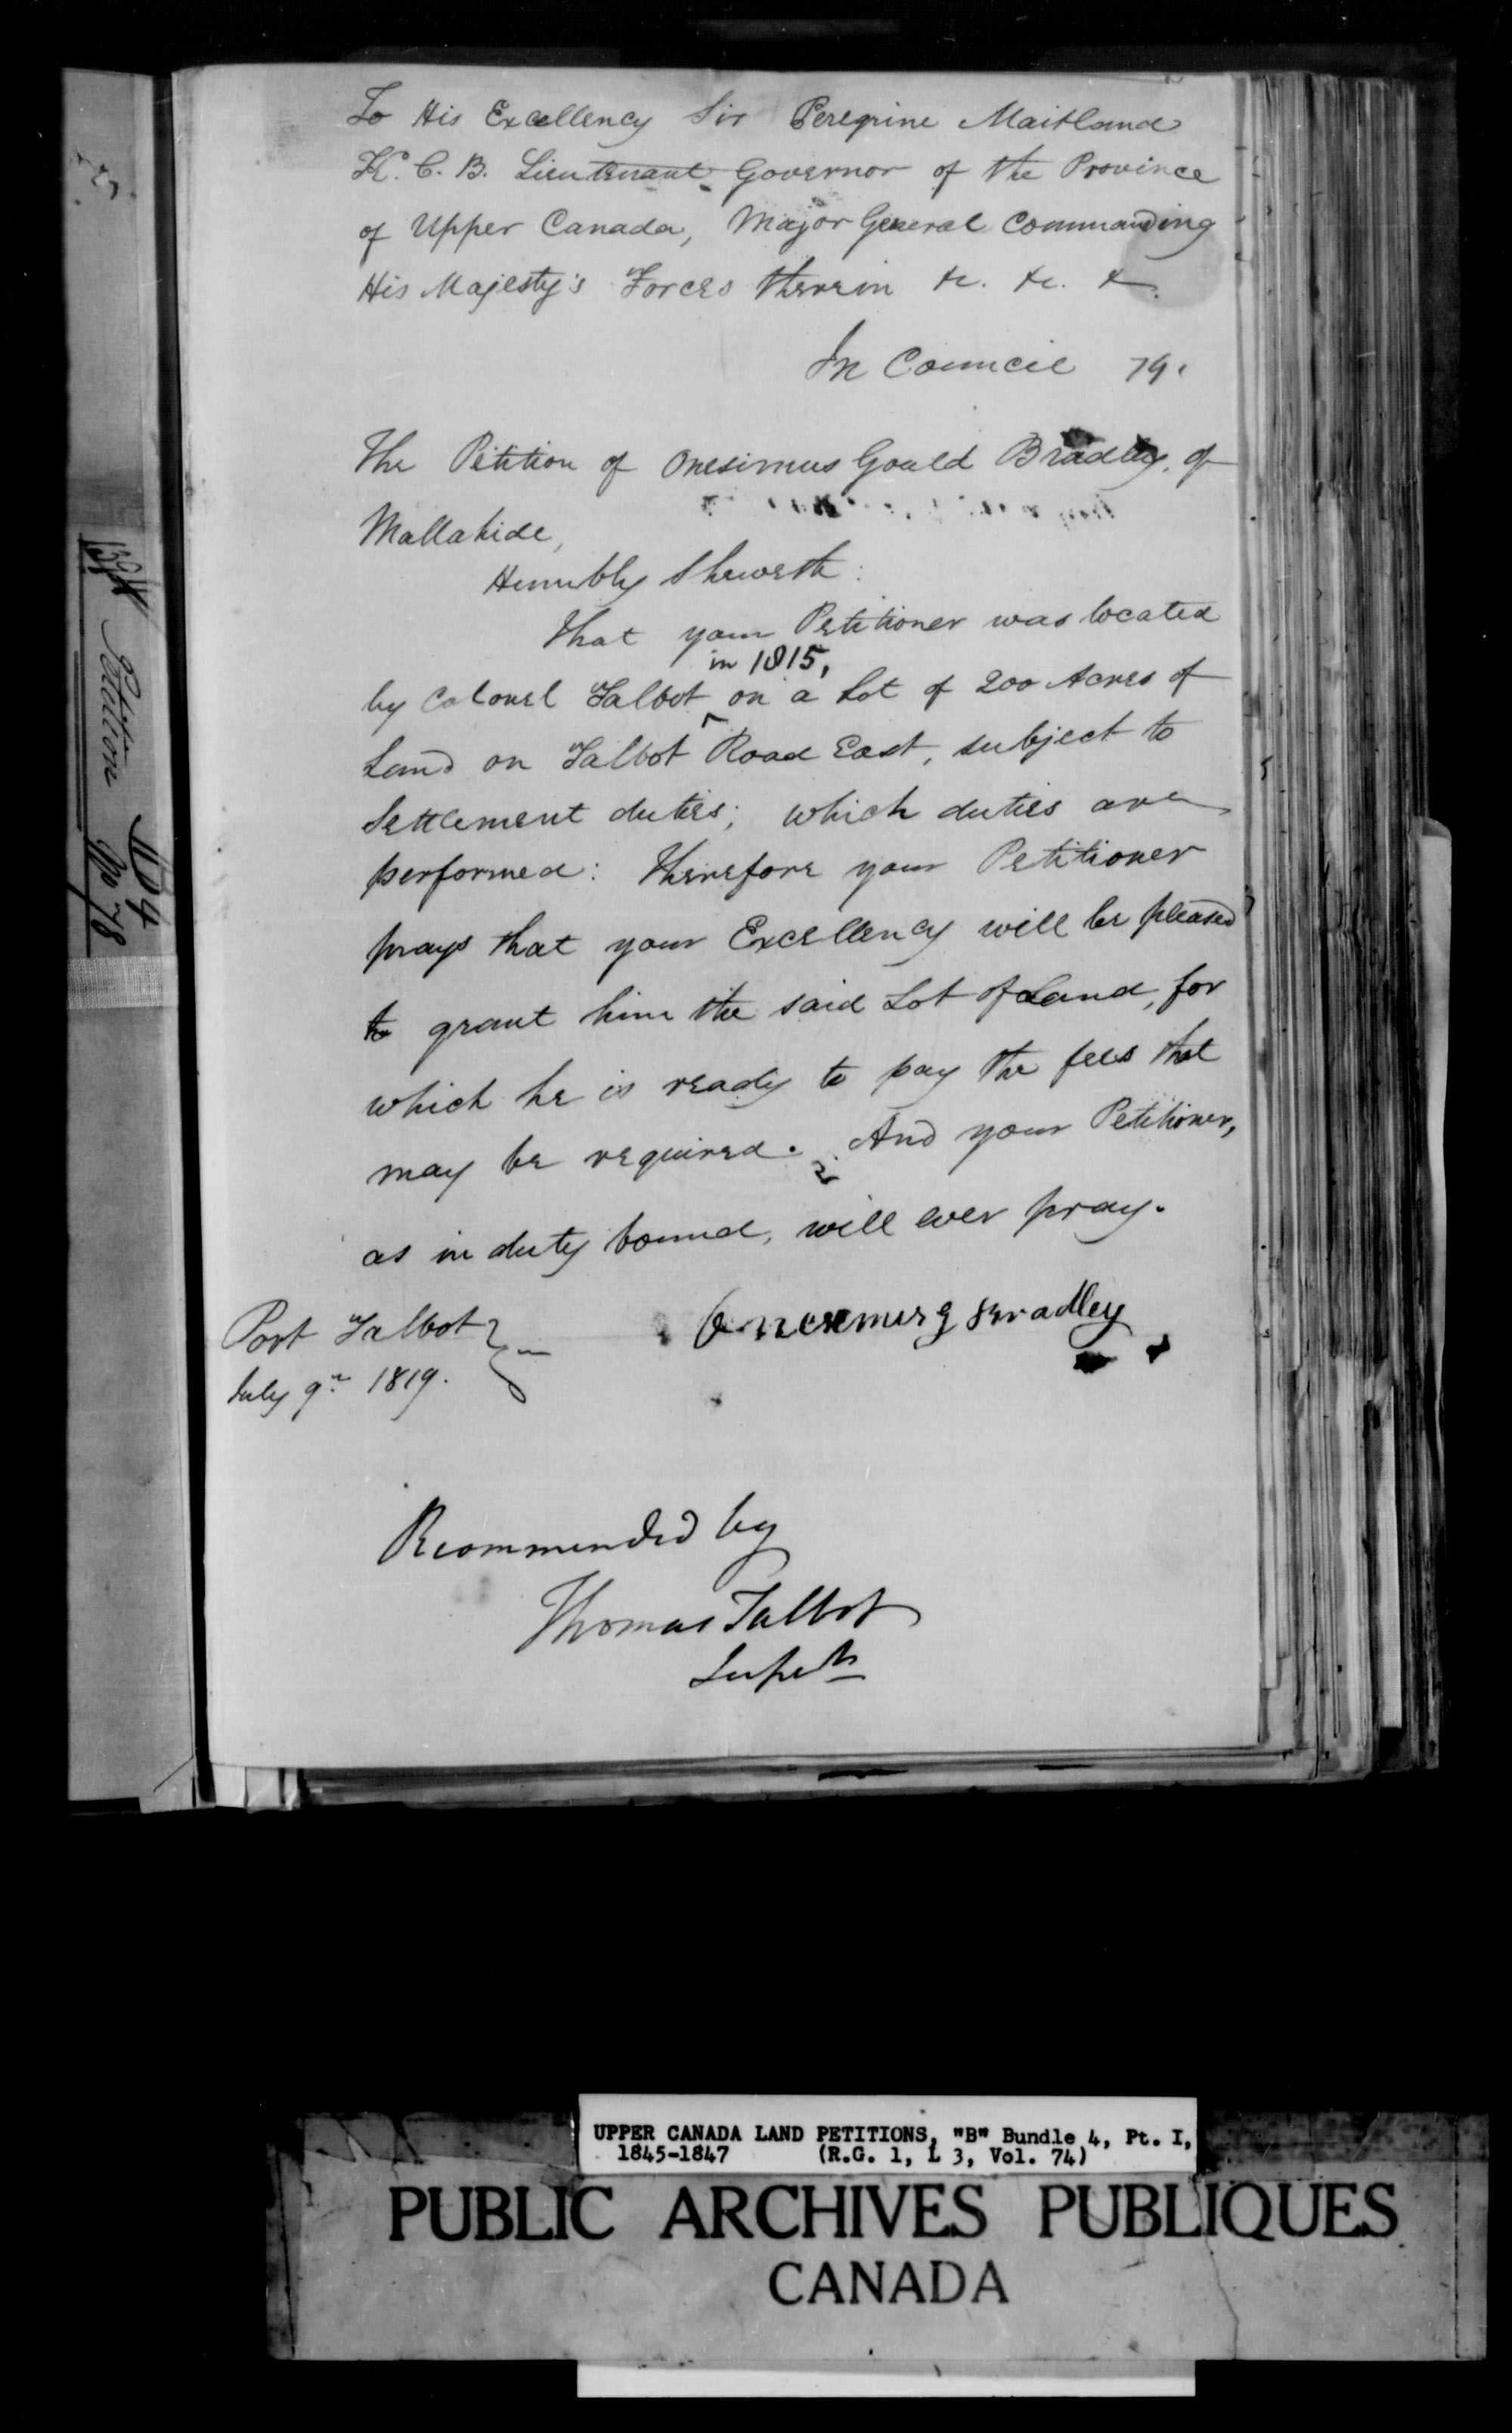 To His Excellency Sir Peregrine Maitland
K. C. B. Lieutenant Governor of the Province
of Upper Canada, Major General Commanding
His Majesty's Forces therein &c. &c. &
In Council 79.
The Petition of Onesimus Gould Bradley, of
Mallahide,
Humbly Sheweth:
That your Petitioner was located
in 1815,
by Colonel Talbot ^ on a Lot of 200 Acres of
Land on Talbot Road East, subject to
Settlement duties; which duties are
performed: Therefore your Petitioner
prays that your Excellency will be pleased
to grant him the said Lot of Land, for
which he is ready to pay the fees that
may be required. And your Petitioner,
as in duty bound, will ever pray.
Onesemus g Bradley
Port Talbot
July 9th 1819.
Recommended by
Thomas Talbot
Supdt
Petition B 4
No 78
UPPER CANADA LAND PETITIONS, "B" Bundle 4, Pt. I,
1845-1847 (R.G. 1, L 3, Vol. 74)
PUBLIC ARCHIVES PUBLIQUES
CANADA